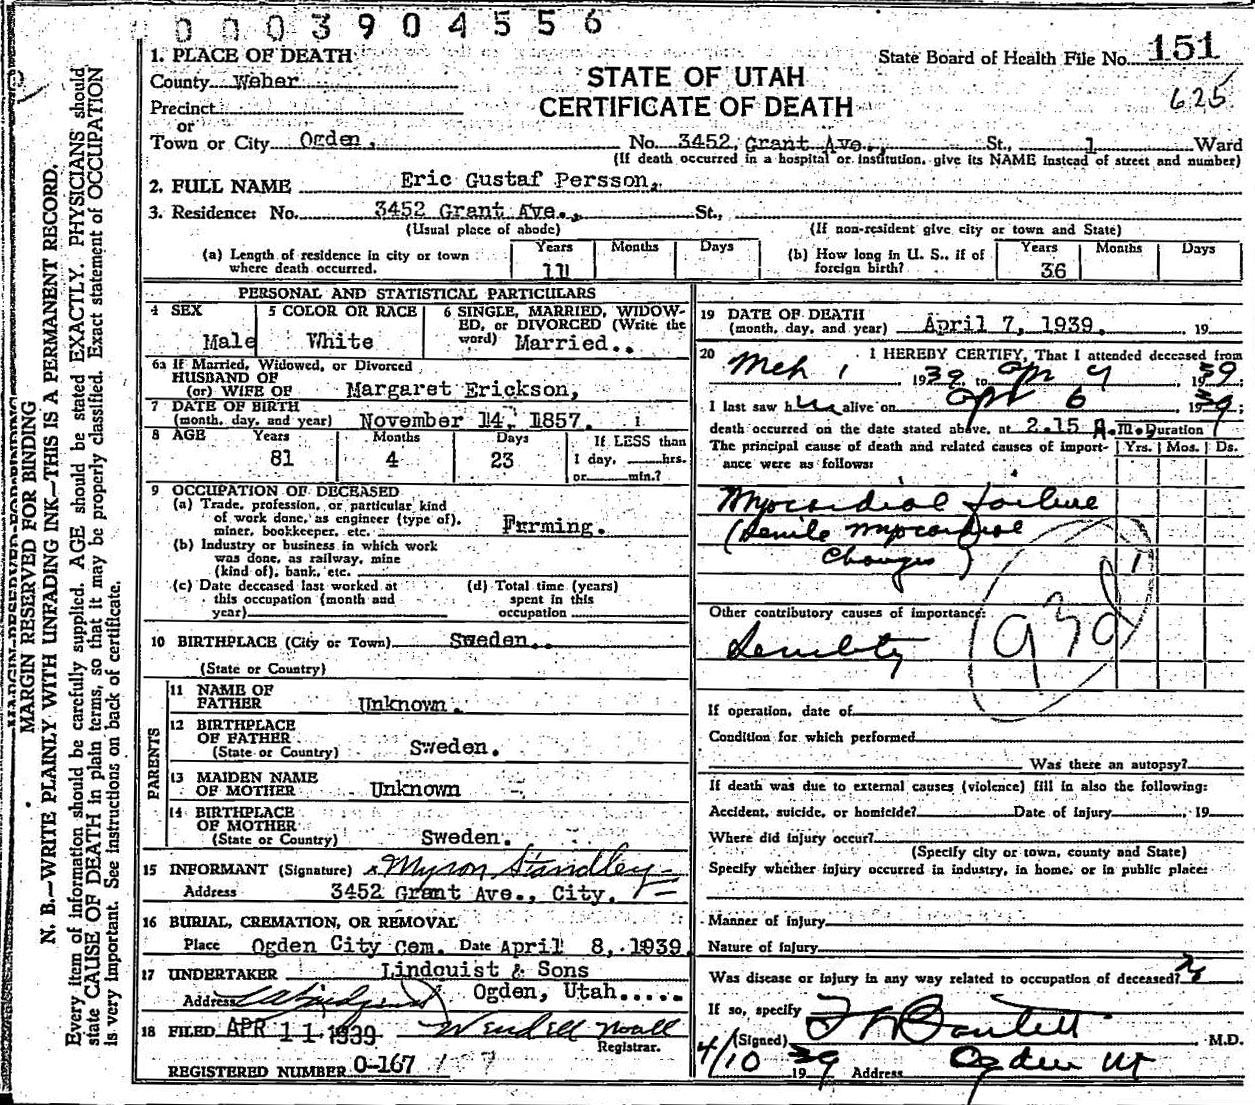 0003904556
1. PLACE OF DEATH
State Board of Health File No. 151
County Weber
STATE OF UTAH
625
Precinct
CERTIFICATE OF DEATH
or
Town or City Ogden, No. 3452 Grant Ave., St., 1 Ward
(If death occurred in a hospital or institution, give its NAME instead of street and number)
2. FULL NAME Eric Gustaf Persson,
3. Residence: No. 3452 Grant Ave., St.,
(Usual place of abode) (If non-resident give city or town and State)
(a) Length of residence in city or town where death occurred. Years 11 Months Days
(b) How long in U. S., if of foreign birth? Years 36 Months Days
PERSONAL AND STATISTICAL PARTICULARS
4 SEX Male
5 COLOR OR RACE White
6 SINGLE, MARRIED, WIDOW-
ED, or DIVORCED (Write the
word) Married..
6a If Married, Widowed, or Divorced
HUSBAND OF
(or) WIFE OF Margaret Erickson,
7 DATE OF BIRTH
(month, day, and year) November 14, 1857.
8 AGE Years 81 Months 4 Days 23
If LESS than
1 day, hrs.
or min.?
9 OCCUPATION OF DECEASED
(a) Trade, profession, or particular kind
of work done, as engineer (type of),
miner, bookkeeper, etc. Farming.
(b) Industry or business in which work
was done, as railway, mine
(kind of), bank, etc.
(c) Date deceased last worked at
this occupation (month and
year)
(d) Total time (years)
spent in this
occupation
10 BIRTHPLACE (City or Town) Sweden..
(State or Country)
PARENTS
11 NAME OF
FATHER Unknown.
12 BIRTHPLACE
OF FATHER
(State or Country) Sweden.
13 MAIDEN NAME
OF MOTHER Unknown
14 BIRTHPLACE
OF MOTHER
(State or Country) Sweden.
15 INFORMANT (Signature) x Myron Standley
Address 3452 Grant Ave., City.
16 BURIAL, CREMATION, OR REMOVAL
Place Ogden City Cem. Date April 8, 1939
17 UNDERTAKER Lindquist & Sons
Address Ogden, Utah.....
18 FILED APR 11 1939 Wendell Noall
Registrar.
REGISTERED NUMBER 0-167
19 DATE OF DEATH
(month, day, and year) April 7, 1939. 19
20 I HEREBY CERTIFY, That I attended deceased from
Mch 1 1939, to Apr 7 1939
I last saw h alive on Apr 6 1939;
death occurred on the date stated above, at 2.15 A.m. Duration
The principal cause of death and related causes of import-
ance were as follows: Yrs. Mos. Ds.
Myocardial failure
(Senile myocardial
Changes)
1
93d
Other contributory causes of importance:
Senility
If operation, date of
Condition for which performed
Was there an autopsy?
If death was due to external causes (violence) fill in also the following:
Accident, suicide, or homicide? Date of injury , 19
Where did injury occur?
(Specify city or town, county and State)
Specify whether injury occurred in industry, in home, or in public place:
Manner of injury
Nature of injury
Was disease or injury in any way related to occupation of deceased? No
If so, specify
(Signed) M.D.
4/10 1939 Address Ogden Ut
MARGIN RESERVED FOR BINDING
N. B.—WRITE PLAINLY WITH UNFADING INK—THIS IS A PERMANENT RECORD.
Every item of information should be carefully supplied. AGE should be stated EXACTLY. PHYSICIANS should
state CAUSE OF DEATH in plain terms, so that it may be properly classified. Exact statement of OCCUPATION
is very important. See instructions on back of certificate.